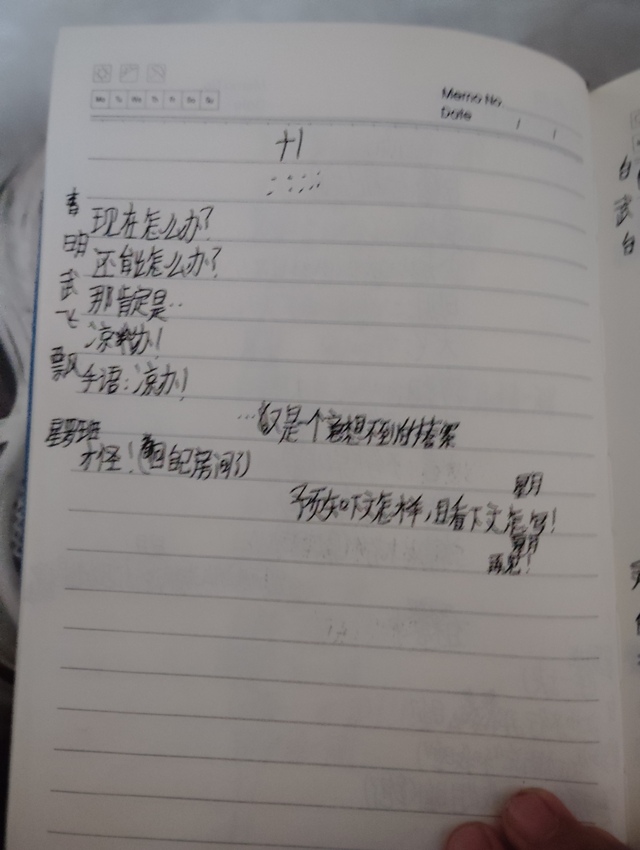 Mo Tu We Th Fr Sa Su
Memo No.
Date / /
十1
春 现在怎么办？
明 还能怎么办？
武 那肯定是..
飞 凉拌办！
飘 手语：凉办！
…又是一个意想不到的答案
星罗班 才怪！（回自己房间了）
星月
予知下文怎样，且看下文怎写！
星月
再见！
白
武
白